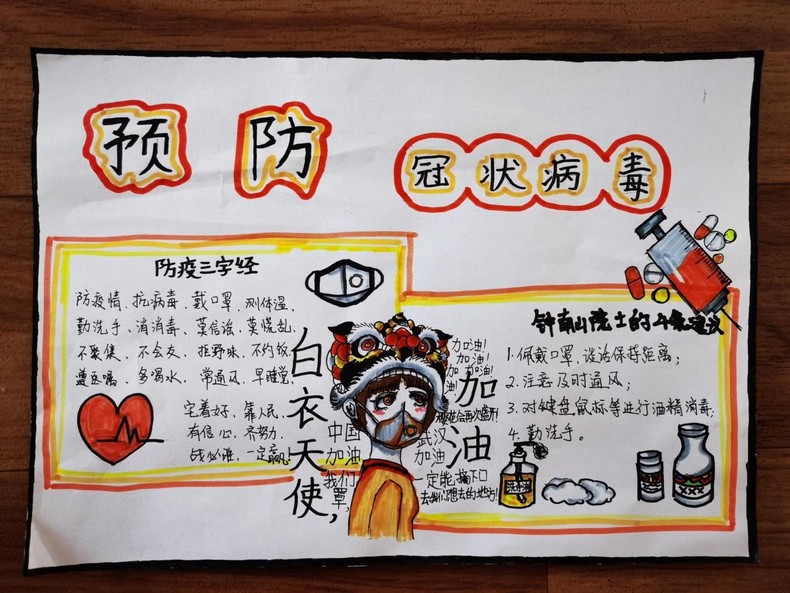 预防
冠状病毒
防疫三字经
防疫情、抗病毒、戴口罩、测体温、
勤洗手、消消毒、莫信谣、莫慌乱、
不聚集、不会友、拒野味、不约饭、
遵医嘱、多喝水、常通风、早睡觉、
宅着好、靠人民、
有信心、齐努力、
战必准、一定赢!
白衣天使,
加油
加油!
加油!
加油!
中国
加油
我们
武汉
加油
一定能摘下口
罩,
去我们想去的地方!
钟南山院士的4条建议
1.佩戴口罩,谈话保持距离;
2.注意及时通风;
3.对键盘鼠标等进行酒精消毒;
4.勤洗手。
洗手液
XXX